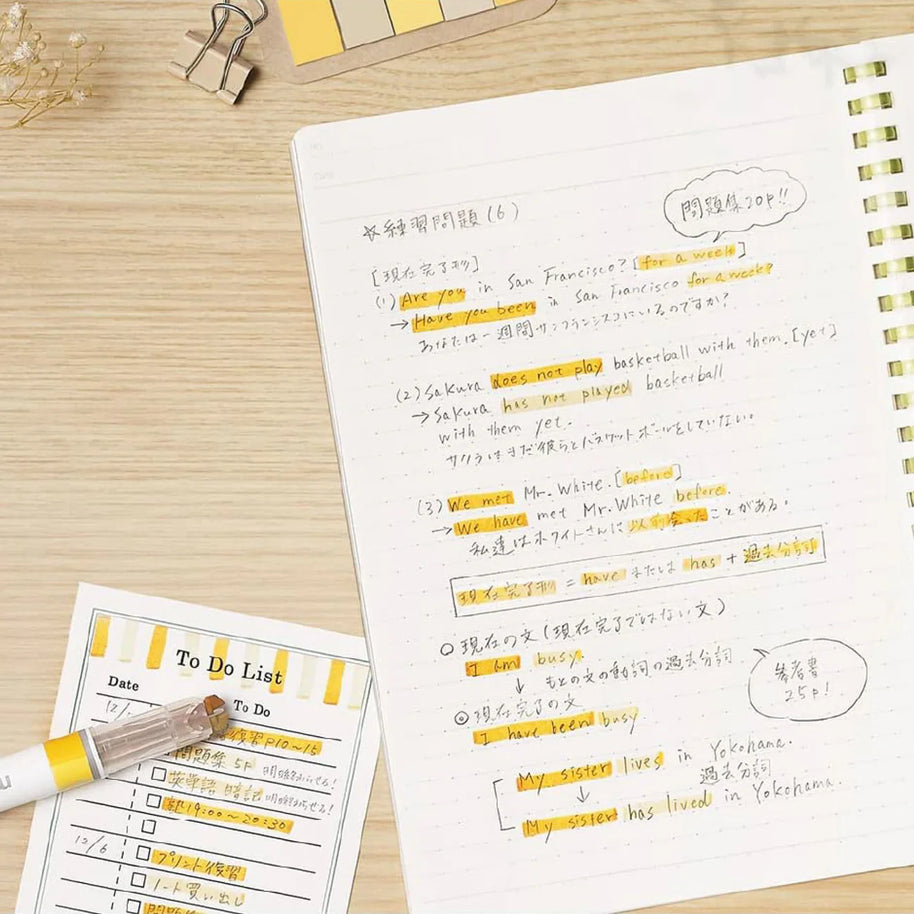 ☆練習問題(6)
問題集20p!!
[現在完了形]
(1) Are you in San Francisco? [for a week]
→ Have you been in San Francisco for a week?
あなたは一週間サンフランシスコにいるのですか?
(2) Sakura does not play basketball with them. [yet]
→ Sakura has not played basketball
with them yet.
サクラはまだ彼らとバスケットボールをしていない。
(3) We met Mr. White. [before]
→ We have met Mr. White before.
私達はホワイトさんに以前会ったことがある。
現在完了形 = have または has + 過去分詞
○ 現在の文(現在完了ではない文)
I am busy.
↓ もとの文の動詞の過去分詞
◎ 現在完了の文
I have been busy
参考書
25p!
My sister lives in Yokohama.
↓ 過去分詞
My sister has lived in Yokohama.
To Do List
Date
To Do
12/
復習 P10〜15
問題集 5p 明日終わらせる!
英単語 暗記 明日終わらせる!
19:00〜20:30
12/6
プリント復習
ノート買い出し
問題集